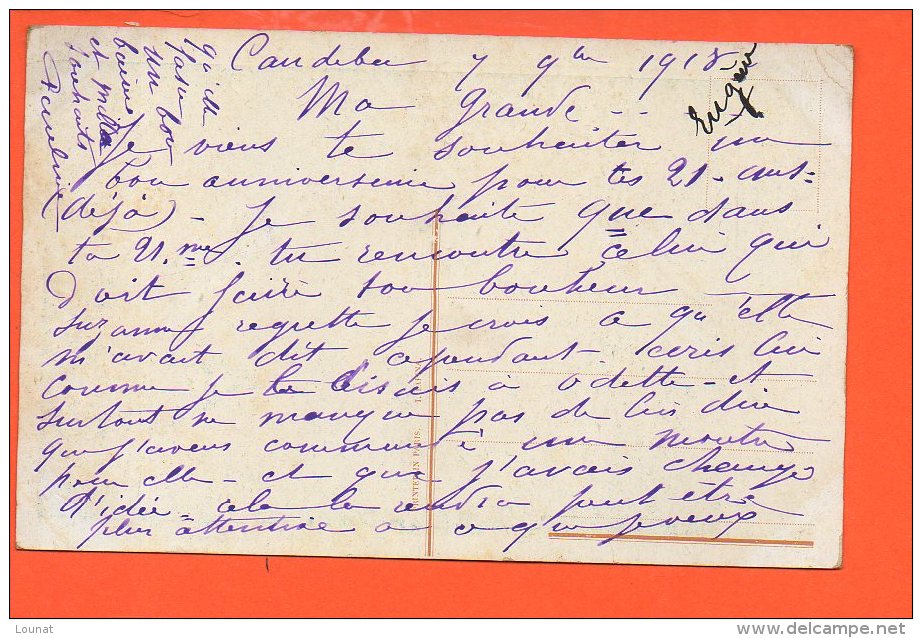 Caudebec 7 9bre 1918
Eugénie
Ma Grande - -
Je viens te souhaiter un
bon anniversaire pour tes 21 - ans -
(déjà) - Je souhaite que dans
ta 21.me tu rencontre celui qui
doit faire ton bonheur -
Suzanne regrette je crois ce qu'elle
m'avait dit cependant - ecris lui
comme je le disais à Odette - et
surtout ne manque pas de lui dire
que j'avais commencé une montre
pour elle - et que j'avais changé
d'idée - cela la rendra peut être
plus attentive a ce que je veux
qu'elle
fasse bon
un bon
baiser
et mille
souhaits
PRINTED IN PARIS
Lounat
Delcampe.net